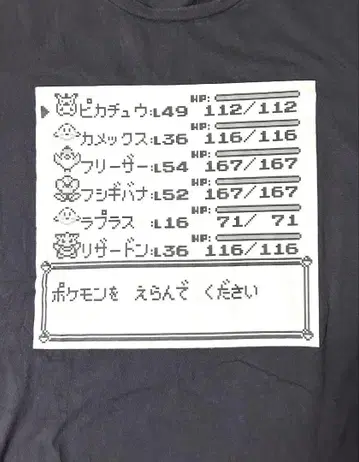 ▶ピカチュウ:L49 HP: 112/112
カメックス:L36 HP: 116/116
フリーザー:L54 HP: 167/167
フシギバナ:L52 HP: 167/167
ラプラス :L16 HP: 71/ 71
リザードン:L36 HP: 116/116
ポケモンを えらんで ください